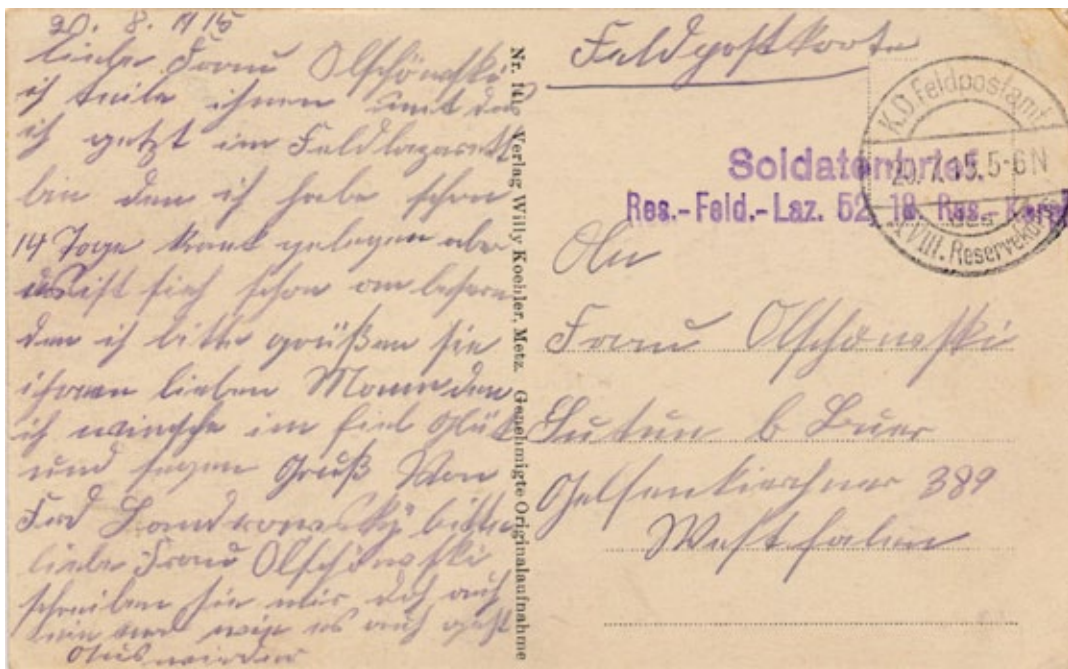 20. 8. 1915
liebe Frau Olschöwski
ich teile ihnen mit das
ich getzt im Feldlazarett
bin den ich habe schon
14 Tage krank gelegen aber
ist schon am besern
den ich bitte grüßen sie
ihren lieben Mann den
ich winsche im fiel Glük
und segen Gruß Von
Ferd Landkowsky bitte
liebe Frau Olschöwski
schreiben sie mir doch auch
mir wie es auch geht
Nr. Verlag Willy Koehler, Metz. Genehmigte Originalaufnahme
Feldpostkarte
K.D. Feldpostamt
20.7.15. 5-6 N
XVIII. Reservekorps
Soldatenbrief.
Res.-Feld.-Laz. 52, 18. Res.-Korps
An
Frau Olschöwski
Sutum b Buer
Gelsenkirchner 389
Westfalen